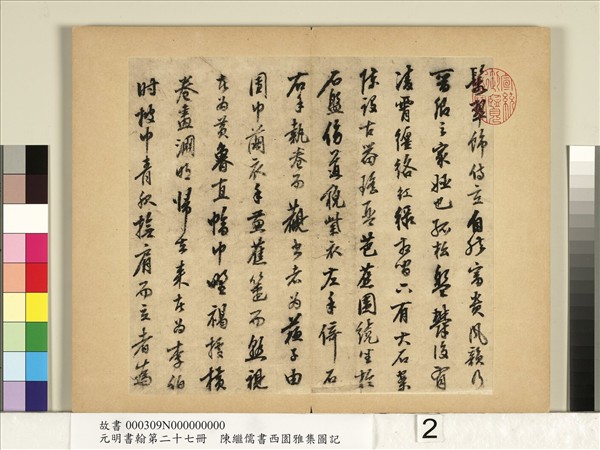 鬟翠飾侍立自然富貴風韻乃
晉卿之家姬也孤松盤鬱後有
凌霄纏絡紅綠相間下有大石案
陳設古器瑤琴芭蕉圍繞坐於
石盤傍道帽紫衣左手倚石
右手執卷而觀書者為蘇子由
團巾繭衣手秉蕉箑而熟視
者為黃魯直幅巾野褐據橫
卷畫淵明歸去來者為李伯
時披巾青服撫肩而立者為
故書 000309N000000000
元明書翰第二十七冊 陳繼儒書西園雅集圖記
2